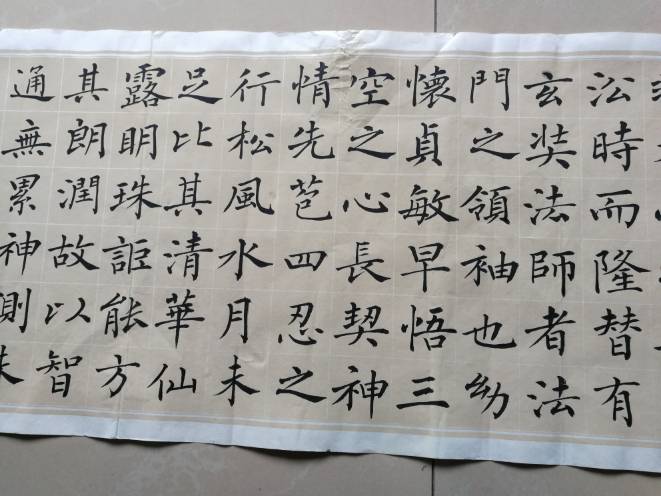 㳂時而隆替有
玄奘法師者法
門之領袖也幼
懷貞敏早悟三
空之心長契神
情先苞四忍之
行松風水月未
足比其清華仙
露眀珠詎能方
其朗潤故以智
通無累神測